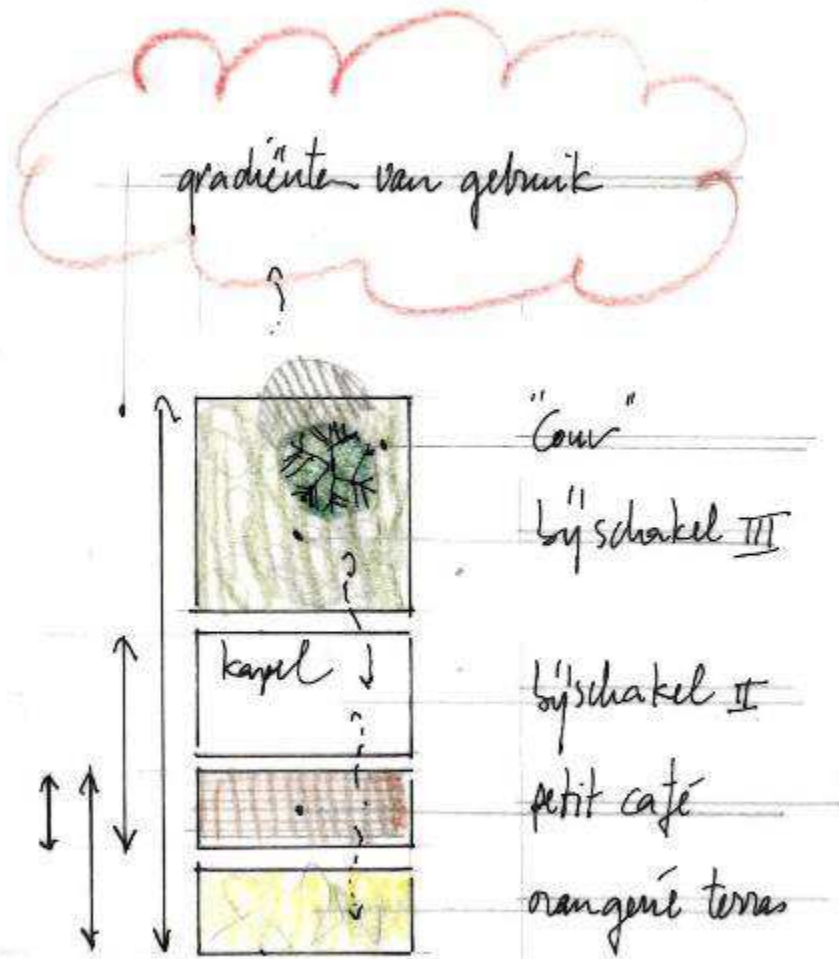 gradiënten van gebruik
"Cour"
bijschakel III
kapel
bijschakel II
petit café
orangerie terras